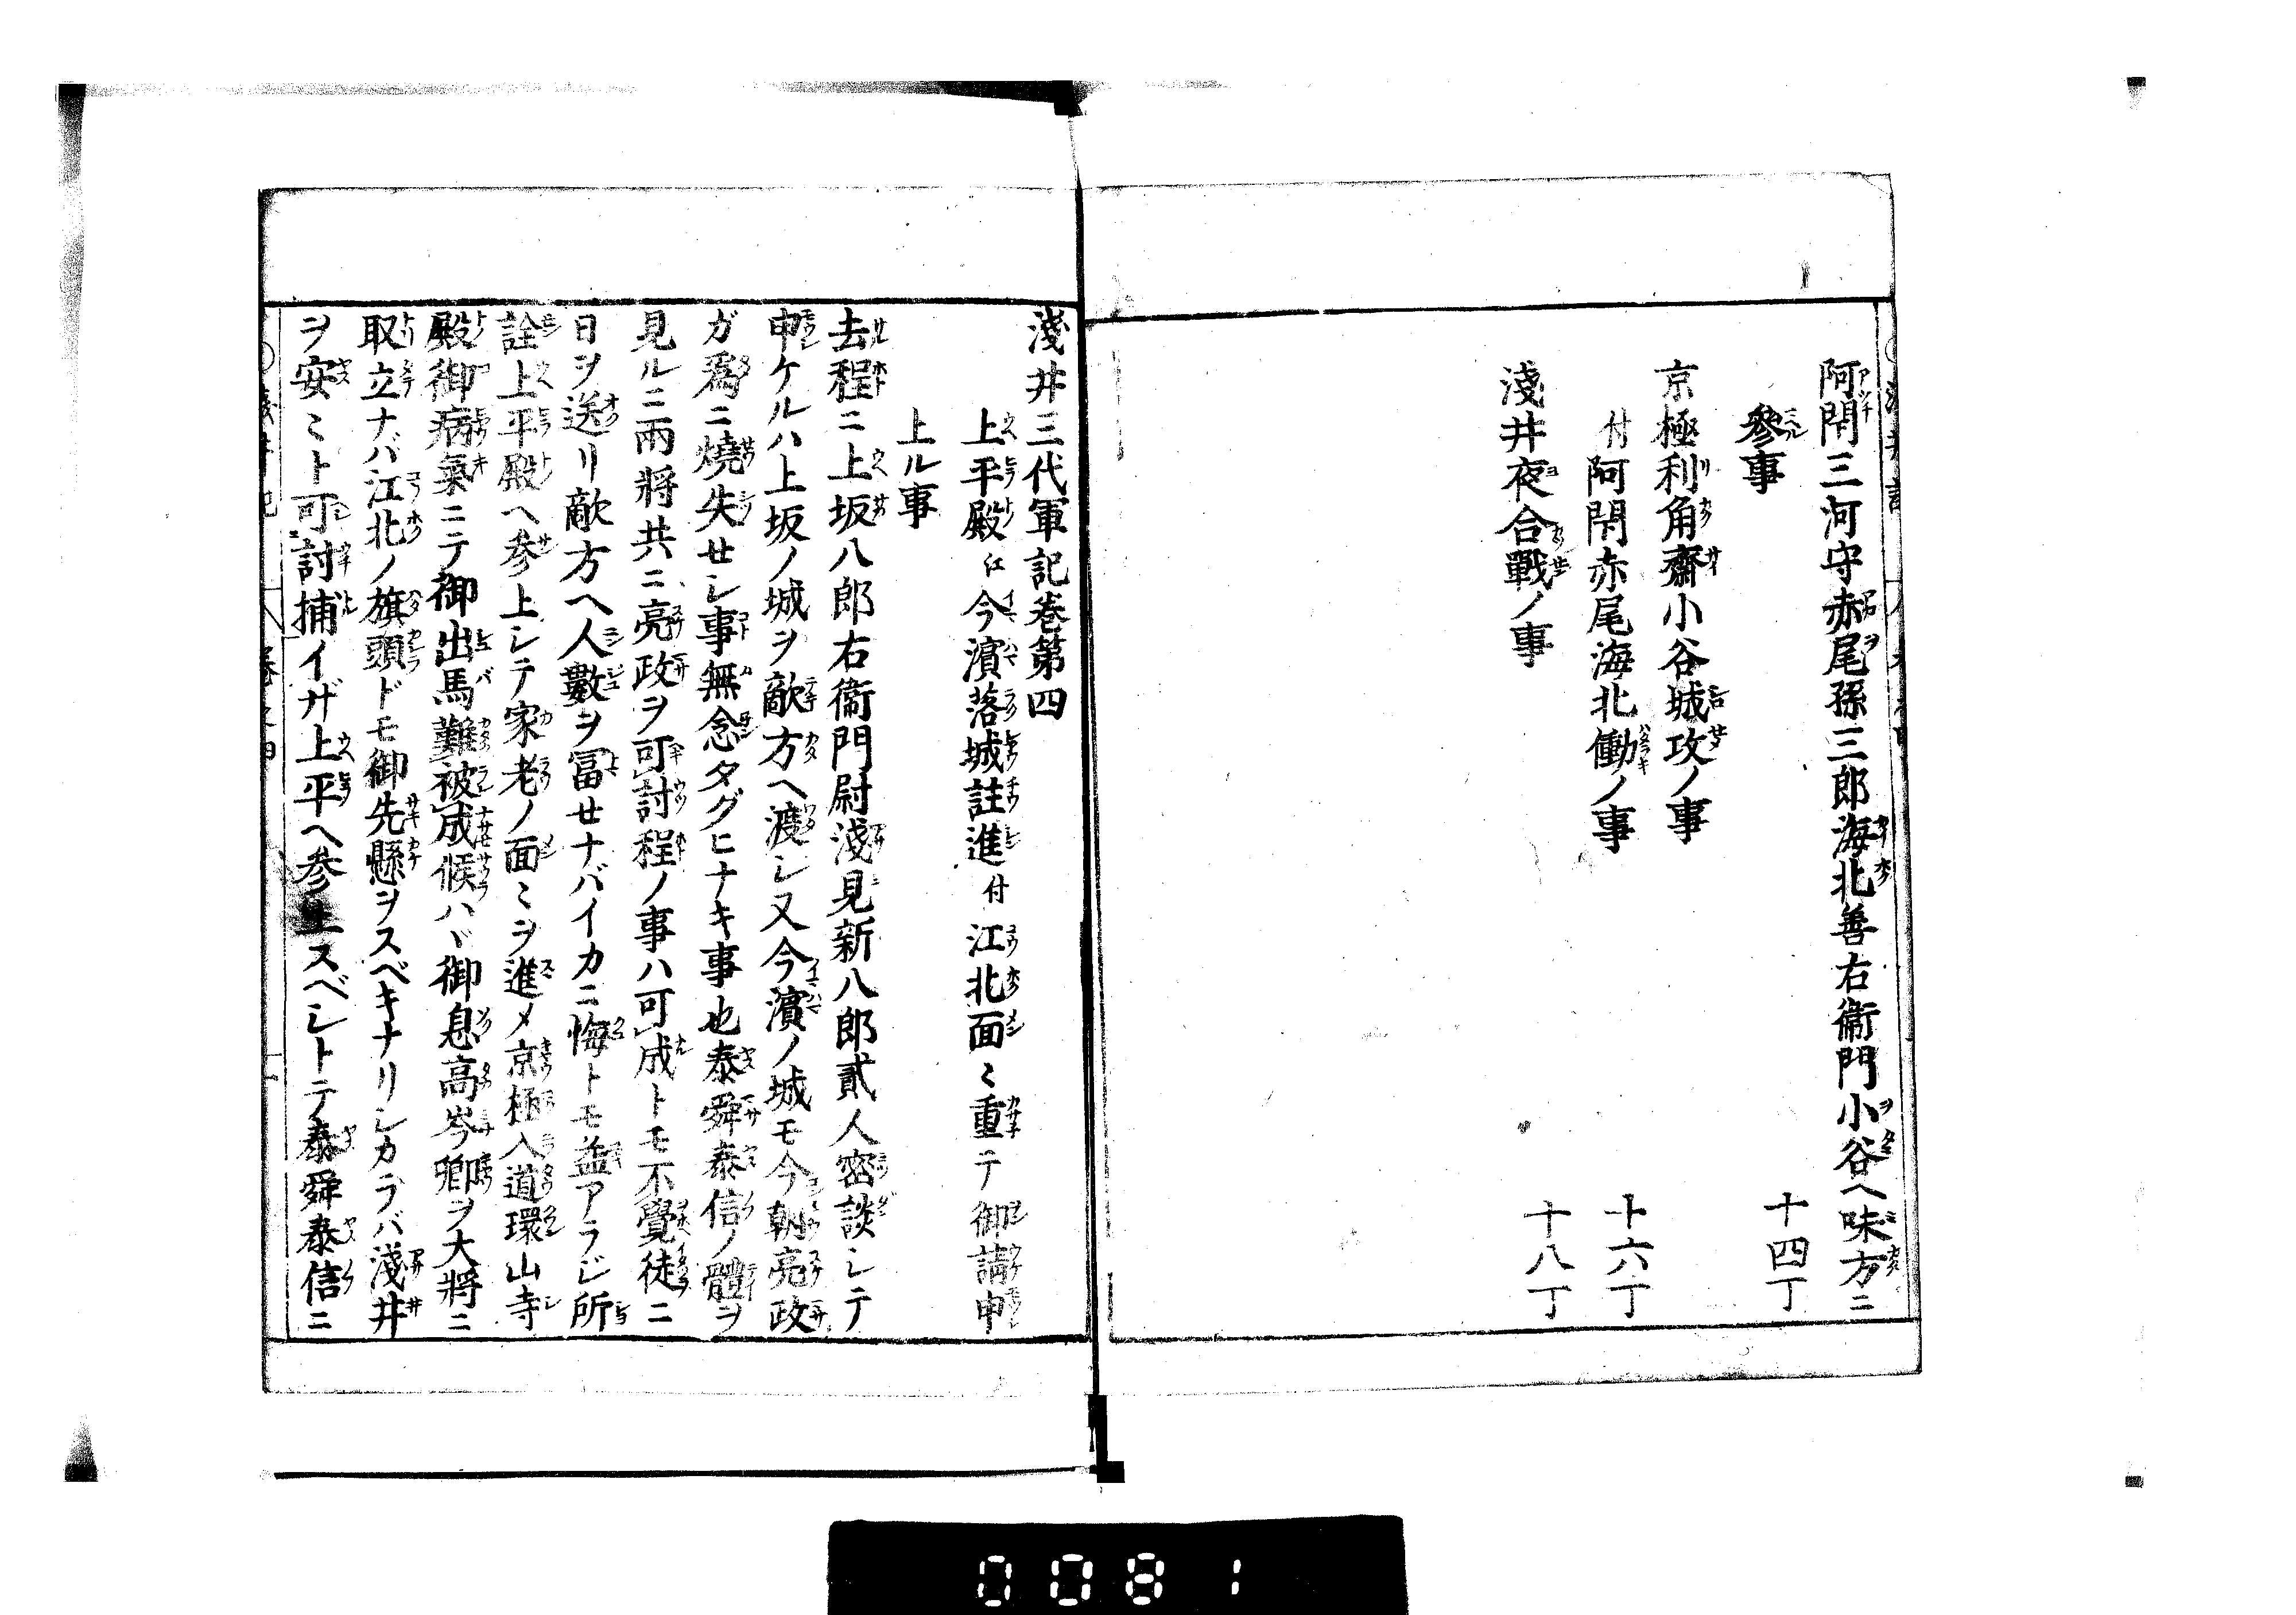 阿閉三河守赤尾孫三郎海北善右衞門小谷ヘ味方ニ
參事
十四丁
京極利角齋小谷城攻ノ事
付阿閉赤尾海北働ノ事
十六丁
淺井夜合戰ノ事
十八丁
淺井三代軍記巻第四
上平殿江今濱落城註進付江北面〻重テ御請申
上ル事
去程ニ上坂八郎右衞門尉淺見新八郎貳人密談シテ
申ケルハ上坂ノ城ヲ敵方ヘ渡シ又今濱ノ城モ今朝亮政
ガ爲ニ燒失セシ事無念タグヒナキ事也泰舜泰信ノ體ヲ
見ルニ兩將共ニ亮政ヲ可討程ノ事ハ可成トモ不覺徒ニ
日ヲ送リ敵方ヘ人數ヲ冨セナバイカニ悔トモ益アラジ所
詮上平殿ヘ参上シテ家老ノ面〻ヲ進メ京極入道環山寺
殿御病氣ニテ御出馬難被成候ハヾ御息高岑卿ヲ大將ニ
取立ナバ江北ノ旗頭ドモ御先懸ヲスベキナリシカラバ淺井
ヲ安〻ト可討捕イザ上平ヘ参上スベシトテ泰舜泰信ニ
0081